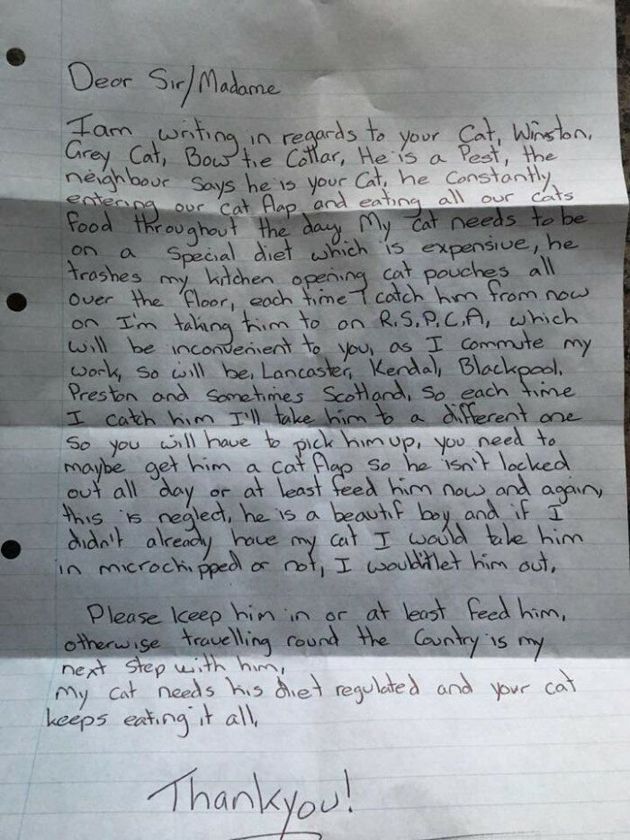 Dear Sir/Madame
I am writing in regards to your Cat, Winston,
Grey Cat, Bow tie Collar, He is a Pest, the
neighbour says he is your Cat, he constantly
entering our cat flap and eating all our cats
food throughout the day, My cat needs to be
on a special diet which is expensive, he
trashes my kitchen opening cat pouches all
over the floor, each time I catch him from now
on I'm taking him to an R.S.P.C.A, which
will be inconvenient to you, as I commute my
work, so will be, Lancaster, Kendal, Blackpool,
Preston and sometimes Scotland, so each time
I catch him I'll take him to a different one
so you will have to pick him up, you need to
maybe get him a cat flap so he isn't locked
out all day or at least feed him now and again,
this is neglect, he is a beautif boy and if I
didn't already have my cat I would take him
in microchipped or not, I wouldn't let him out,
Please keep him in or at least feed him,
otherwise travelling round the Country is my
next step with him,
My cat needs his diet regulated and your cat
keeps eating it all,
Thankyou!